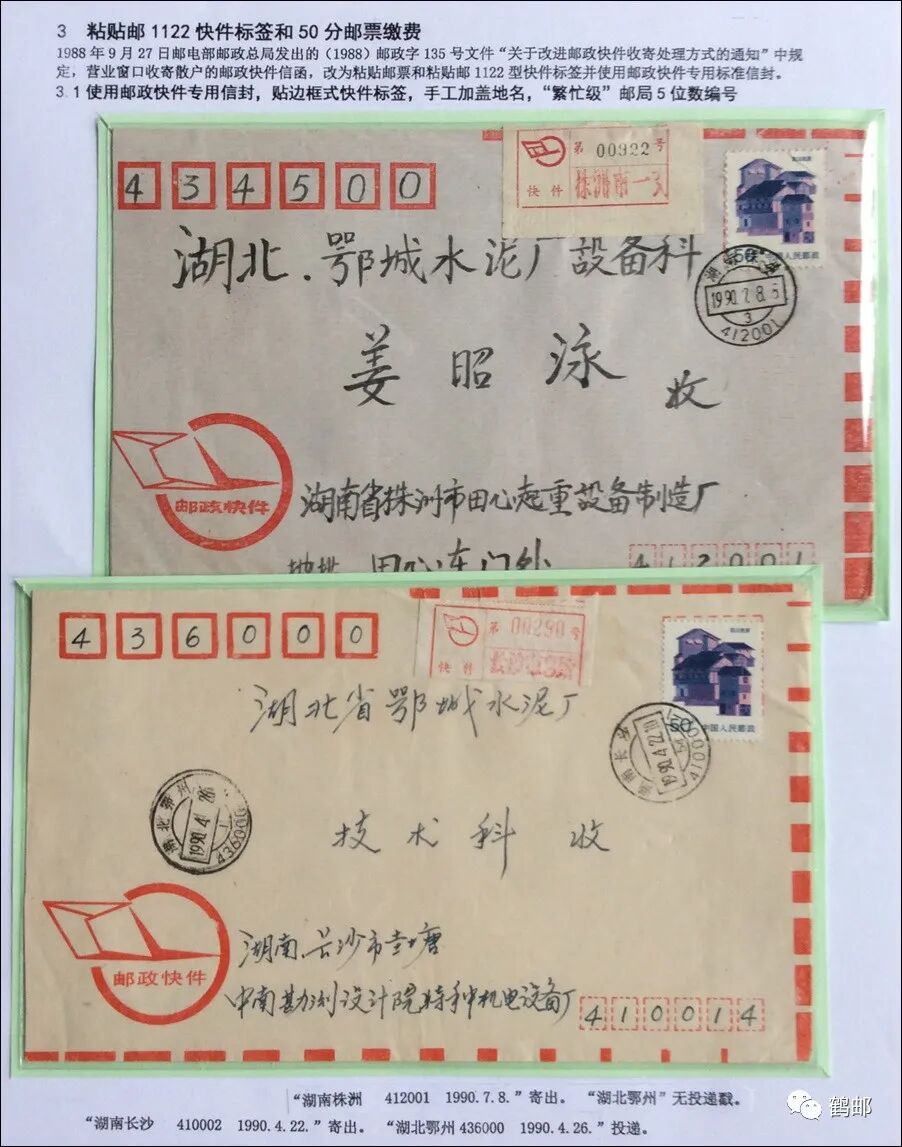 3 粘贴邮1122快件标签和50分邮票缴费
1988年9月27日邮电部邮政总局发出的(1988)邮政字135号文件“关于改进邮政快件收寄处理方式的通知”中规
定，营业窗口收寄散户的邮政快件信函，改为粘贴邮票和粘贴邮1122型快件标签并使用邮政快件专用标准信封。
3.1使用邮政快件专用信封，贴边框式快件标签，手工加盖地名，“繁忙级”邮局5位数编号
434500
第 00922 号
快件 株洲市一支
湖北.鄂城水泥厂設备科
50 中国人民邮政
1990.7.8.
3
412001
姜昭泳 收
邮政快件
湖南省株洲市田心起重設备制造厂
地址 田心东门外
412001
436000
第 00290 号
快件
湖北省鄂城水泥厂
50 中国人民邮政
湖南长沙
1990.4.22.
湖北鄂州
1990.4.26
1
436000
技术科 收
邮政快件
湖南.长沙市圭塘
中南勘测设计院特种机电设备厂
410014
“湖南株洲 412001 1990.7.8.”寄出。“湖北鄂州”无投递戳。
“湖南长沙 410002 1990.4.22.”寄出。“湖北鄂州436000 1990.4.26.”投递。
鹤邮